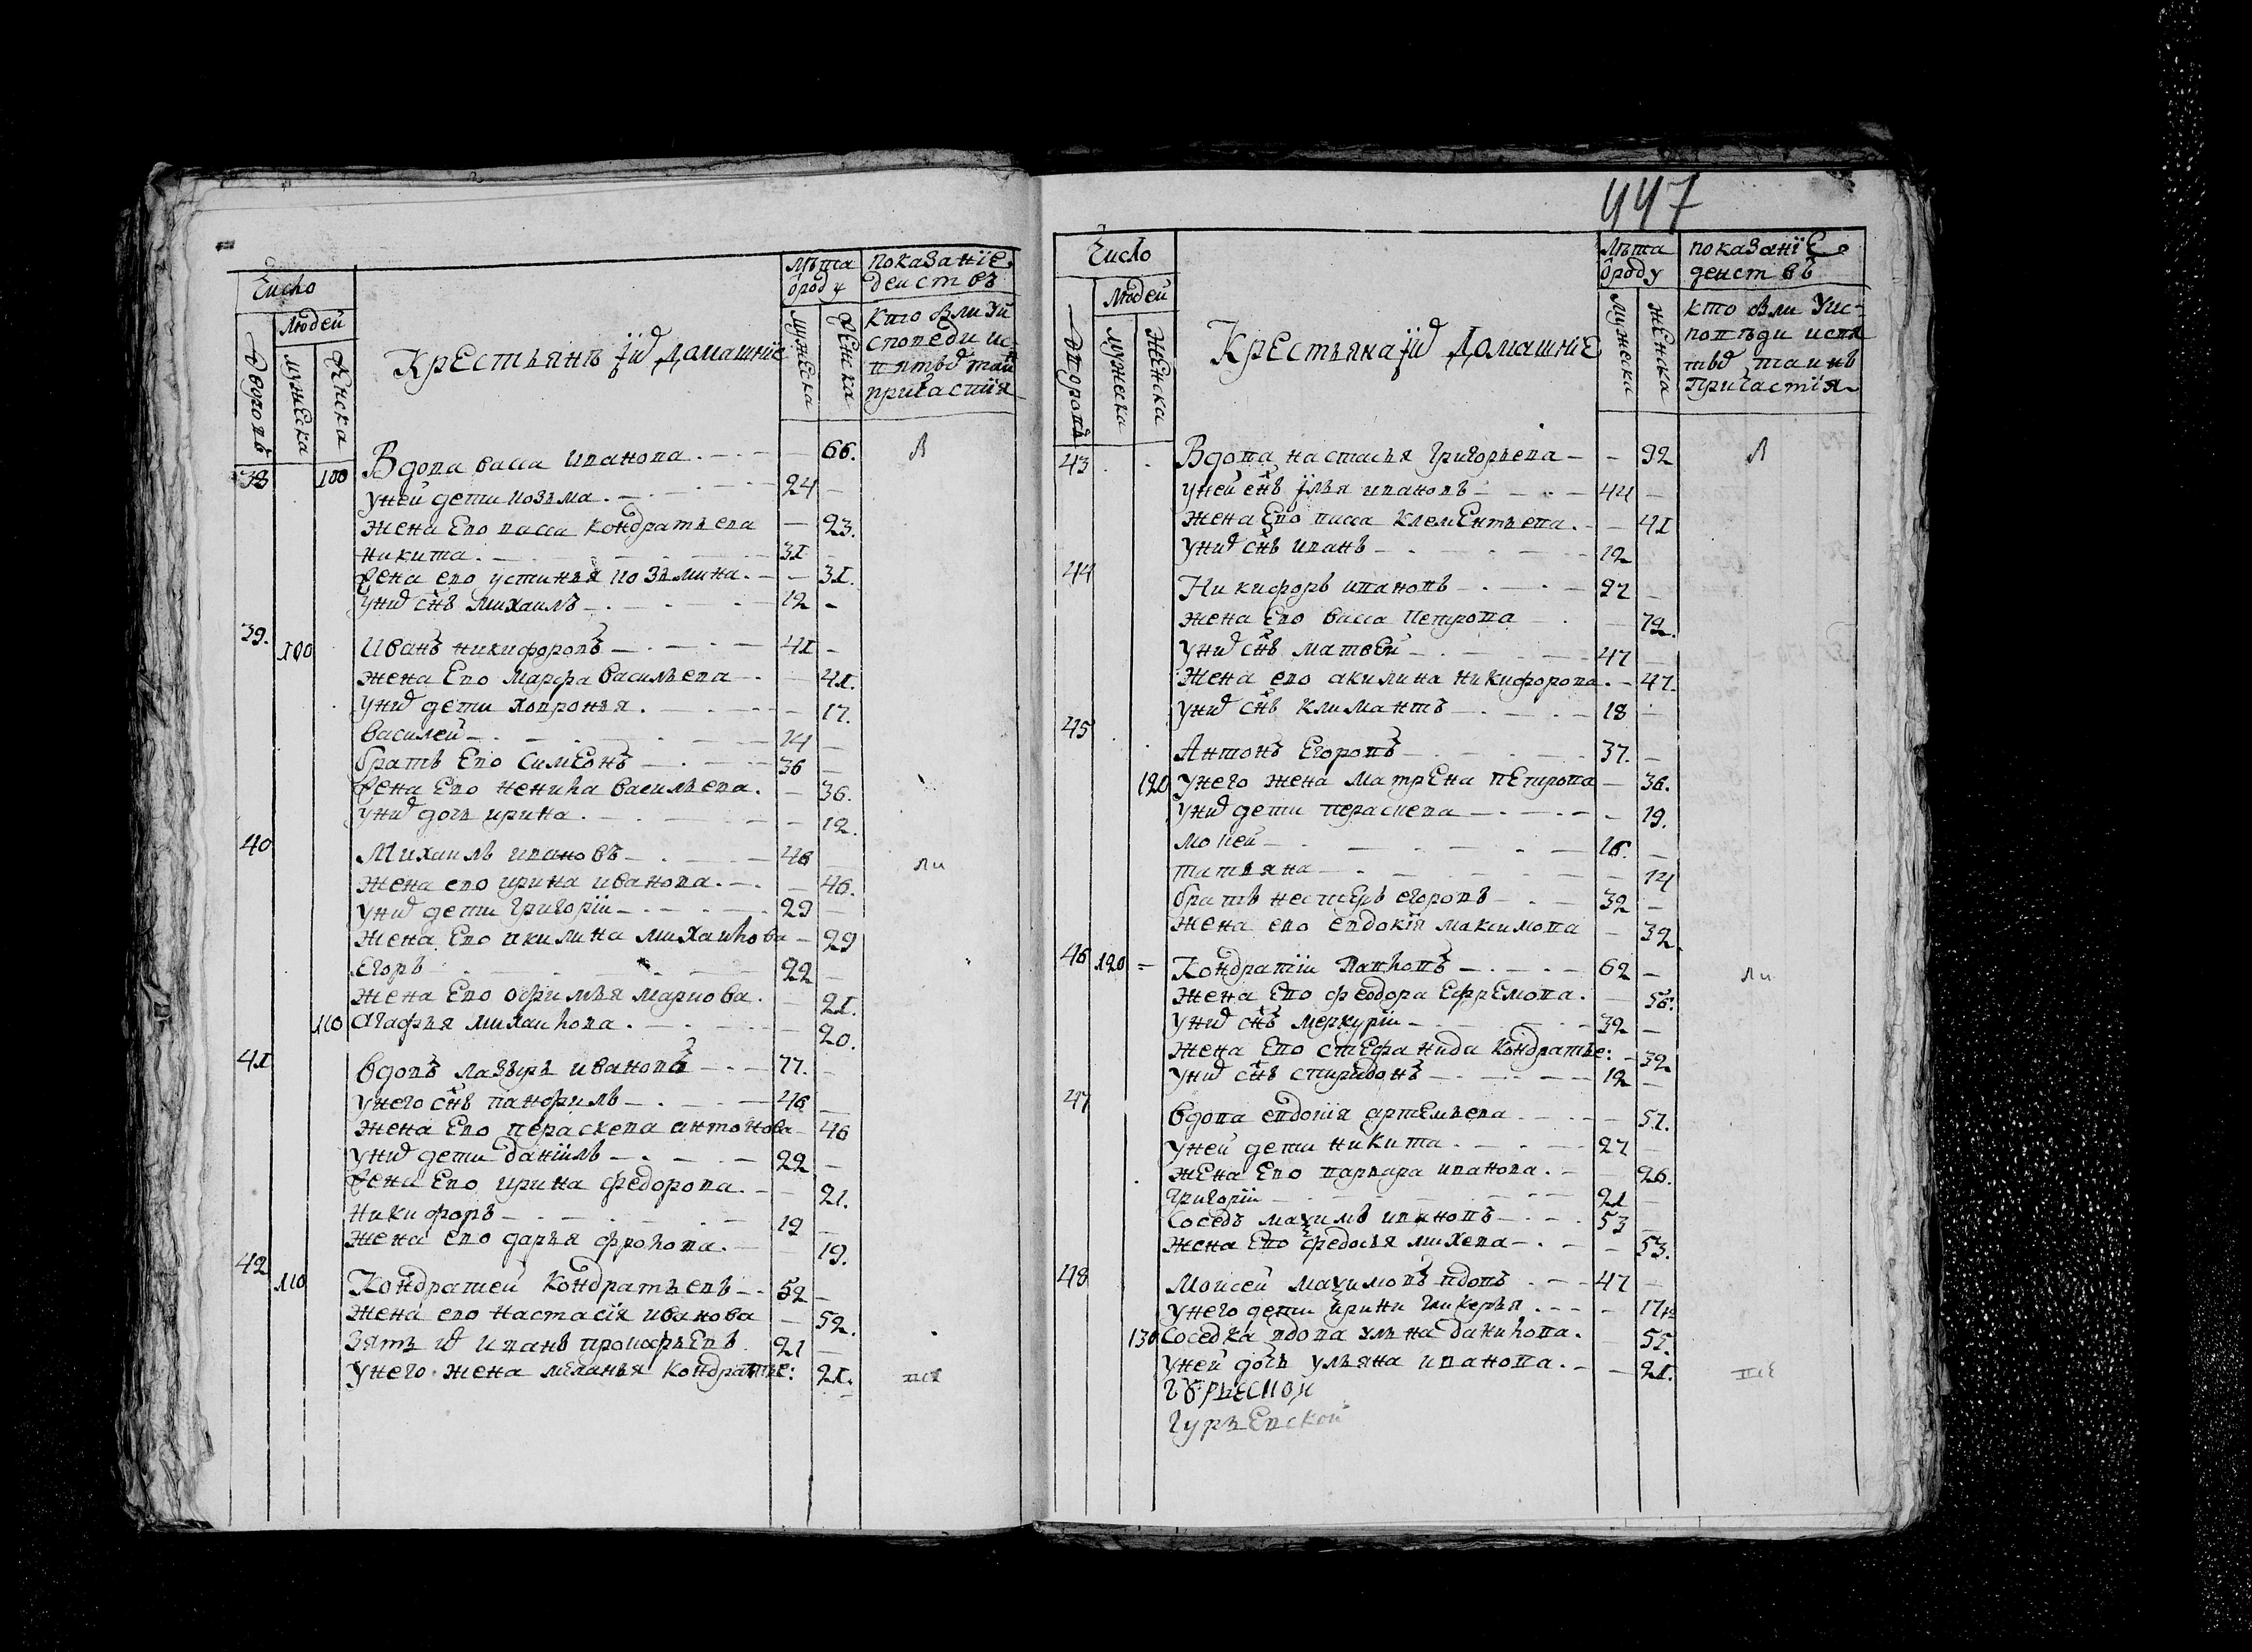 Число
Людей
Дворовъ
мужеска
женска
Крестьянѣ їихъ домашнїе
лѣта
ѿроду
мужеска
женска
показанїе
деиствъ
кто были уи
споведи и с
причастия
38 100 Вдова васса иванова 66. Л
уней дети козьма 24
жена Ево васса кондратьева 23.
никита 31
жена ево устинья козьмина 31.
унихъ сн҃ъ михаилъ 12
39. 100 Иванъ никифоровъ 41
жена Ево марфа васильева 41.
унихъ дети ховронья 17.
василей 14
братъ Ево симеонъ 36
жена Ево ненила васильева 36.
унихъ дочь ирина 12.
40 Михаилъ ивановъ 46 ли
жена ево ирина иванова 46.
унихъ дети григорїи 29
жена Ево акилина михаилова 29
Егоръ 22
жена Ево офимья маркова 21.
110 Агафья михаилова 20.
41 вдовъ лазырь ивановъ 77.
унего сн҃ъ панфилъ 46
жена Ево пераскева антонова 46
унихъ дети данїилъ 22
жена Ево ирина федорова 21.
никифоръ 19
жена ево дарья фролова 19.
42 110 Кондратей кондратьевъ 52
жена ево настасїя иванова 52.
зять ихъ иванъ прокофьевъ 21
унего жена меланья кондратье: 21.
447
Число
Людей
Дворовъ
мужеска
женска
Крестьяна їихъ домашнїе
лѣта
ѿроду
мужеска
женска
показанїе
деиствъ
кто были уис-
поведи исвя
тыхъ таинъ
причастїя
43 Вдова настасья григорьева 92 Л
уней сн҃ъ їлья ивановъ 44
жена Ево васса клементьева 41
унихъ сн҃ъ иванъ 12
44 Никифоръ ивановъ 77
жена Ево васса петрова 72.
унихъ сн҃ъ матвей 47
жена ево акилина никифорова 47.
унихъ сн҃ъ климантъ 18
45 Антонъ Егоровъ 37.
120 унего жена матрена петрова 36.
унихъ дети пераскева 19.
мокей 16.
татьяна 14
братъ нестеръ егоровъ 32
жена ево евдокїя максимова 32
46 120 Кондратїи павловъ 62 ли
жена Ево феодора ефремова 56.
унихъ сн҃ъ меркурїи 32
жена Ево стефанида кондратье: 32
унихъ сн҃ъ спиридонъ 12
47 вдова евдокїя артемьева 57.
уней дети никита 27
жена Ево варвара иванова 26.
григорїи 21
Соседъ ма𝑥имъ ивановъ 53
жена Ево федосья михева 53.
48 Моисей ма𝑥имовъ вдовъ 47
унего дети ирина гликерья 17
130 соседка вдова ульяна данилова 55.
уней дочь ульяна иванова 21.
гурьевской